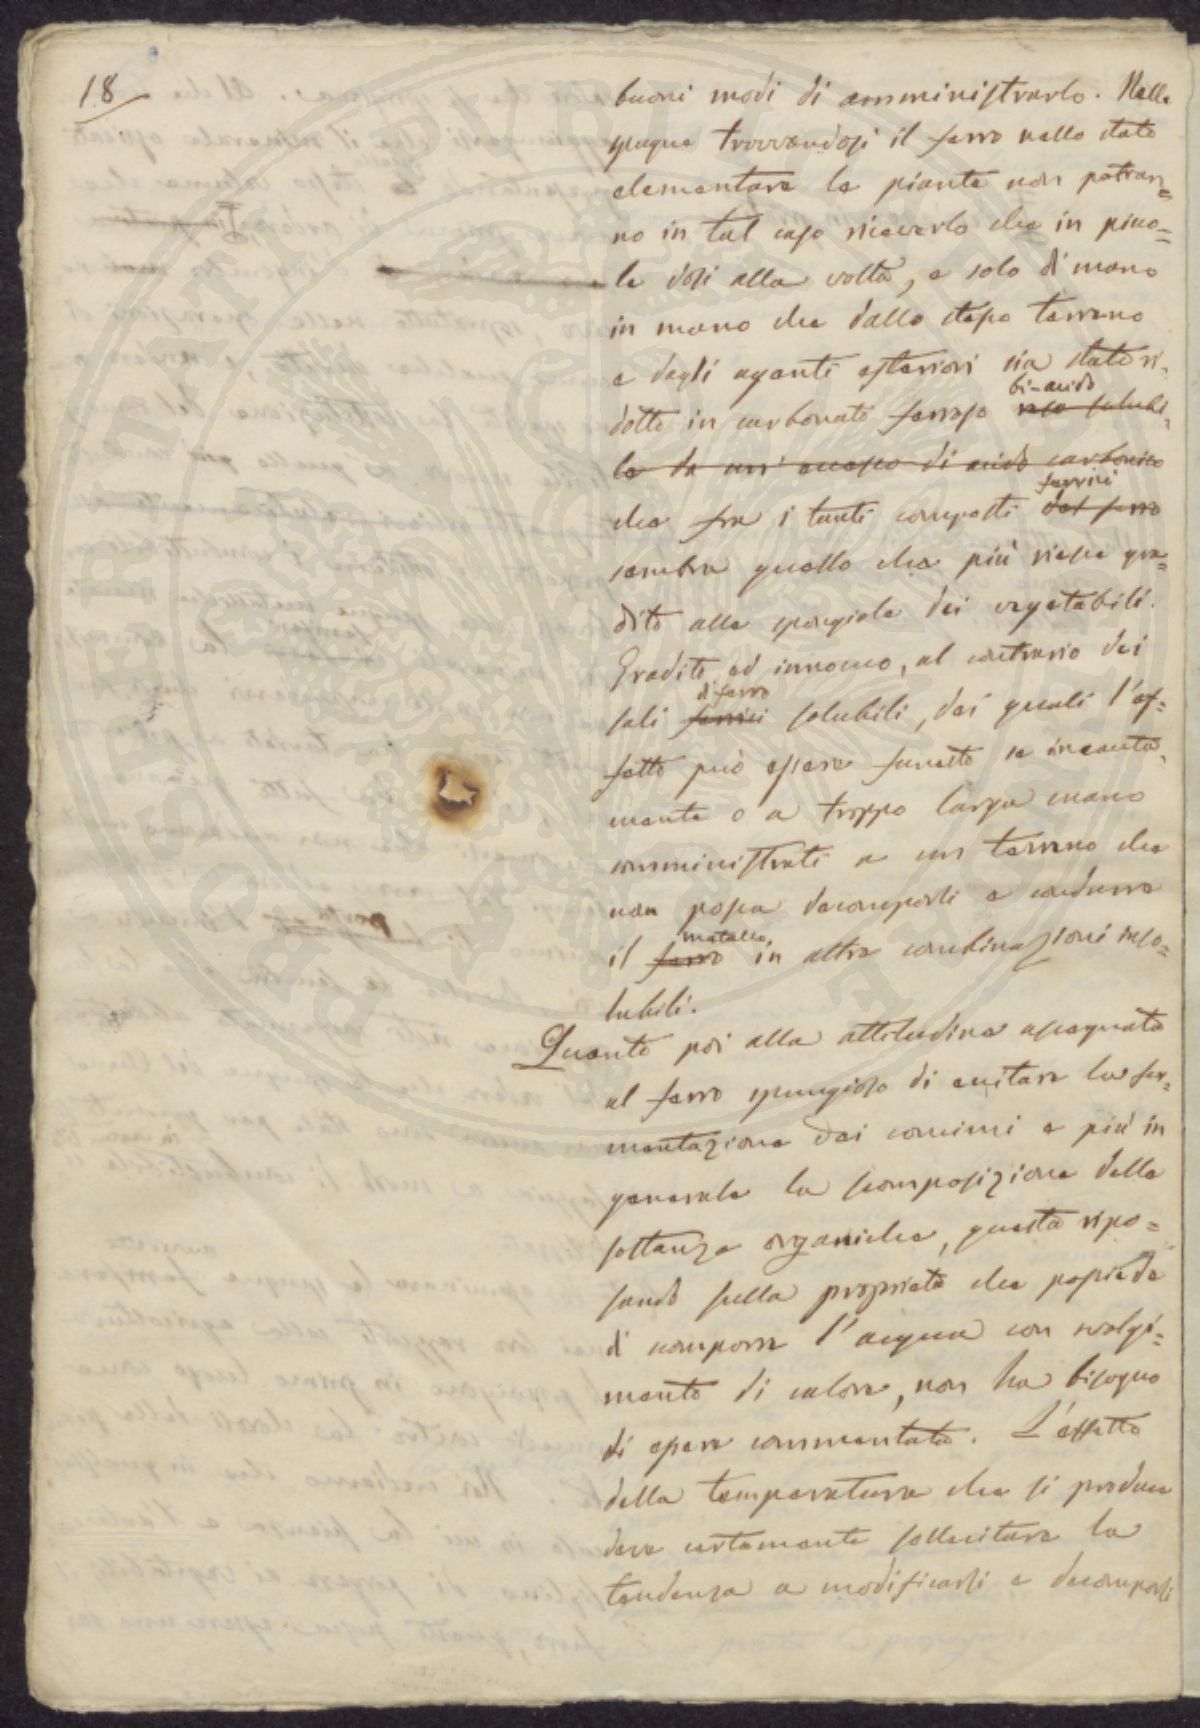 18
buoni modi di amministrarlo. Nelle
spugne trovandosi il ferro nello stato
elementare le piante non potran=
no in tal caso riceverlo che in picco=
le dosi alla volta, e solo di mano
in mano che dallo stesso terreno
e dagli agenti esteriori sia stato ri-
bi-acido
dotto in carbonato ferroso reso solubi-
le da un eccesso di acido carbonico
ferrici
che fra i tanti composti del ferro
sembra quello che più riesce gra=
dito alle spongiole dei vegetabili.
Gradito ed innocuo, al contrario dei
di ferro
sali ferrici solubili, dei quali l'ef=
fetto può essere funesto se incauta-
mente o a troppo larga mano
somministrati a un terreno che
non possa decomporli e condurre
metallo,
il ferro in altre combinazioni inso=
lubili.
Quanto poi alla attitudine assegnata
al ferro spungioso di eccitare la fer-
mentazione dei concimi e più in
generale la scomposizione delle
sostanze organiche, questa ripo=
sando sulla proprietà che possiede
di scomporre l'acqua con svolgi=
mento di calore, non ha bisogno
di essere commentata. L'effetto
della temperatura che si produce
deve certamente sollecitare la
tendenza a modificarsi e decomporsi